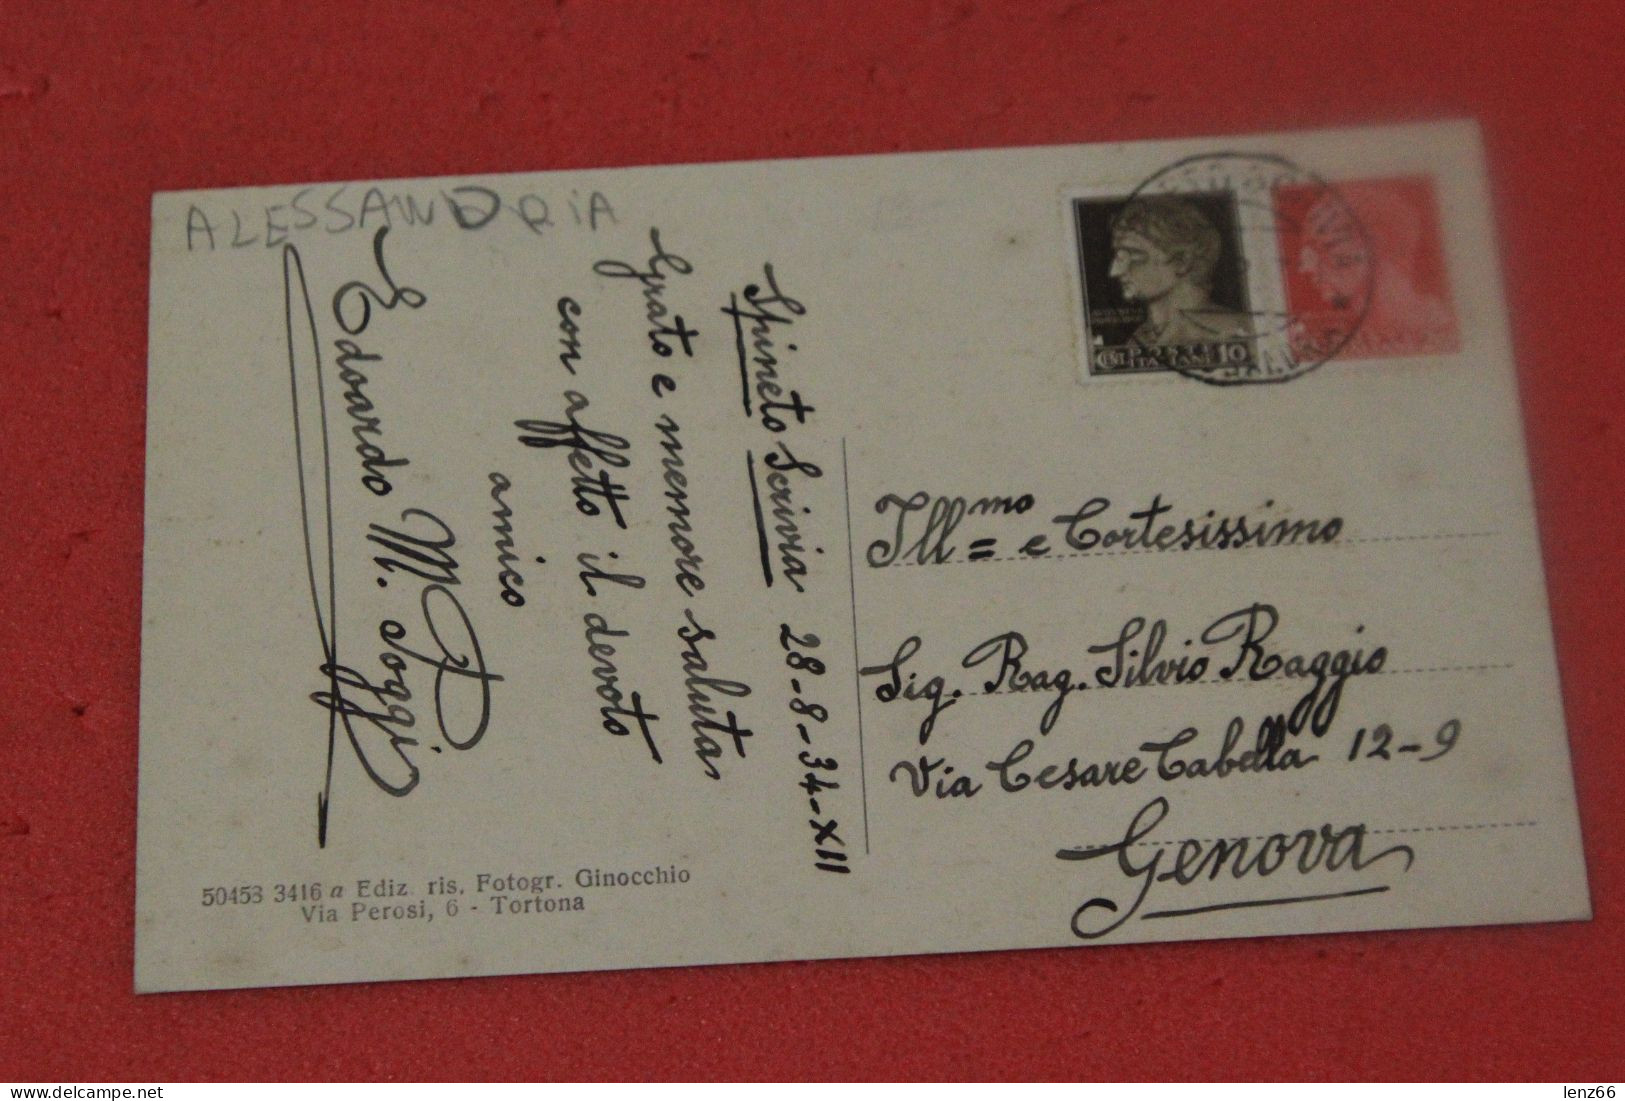 ALESSANDRIA
Spineto Scrivia 28-8-34-XII
Grato e memore saluta
con affetto il devoto
amico
Edoardo M. Poggi
50453 3416 a Ediz. ris. Fotogr. Ginocchio
Via Perosi, 6 - Tortona
CENT. 10
Ill=mo e Cortesissimo
Sig. Rag. Silvio Raggio
Via Cesare Cabella 12-9
Genova
lenz66